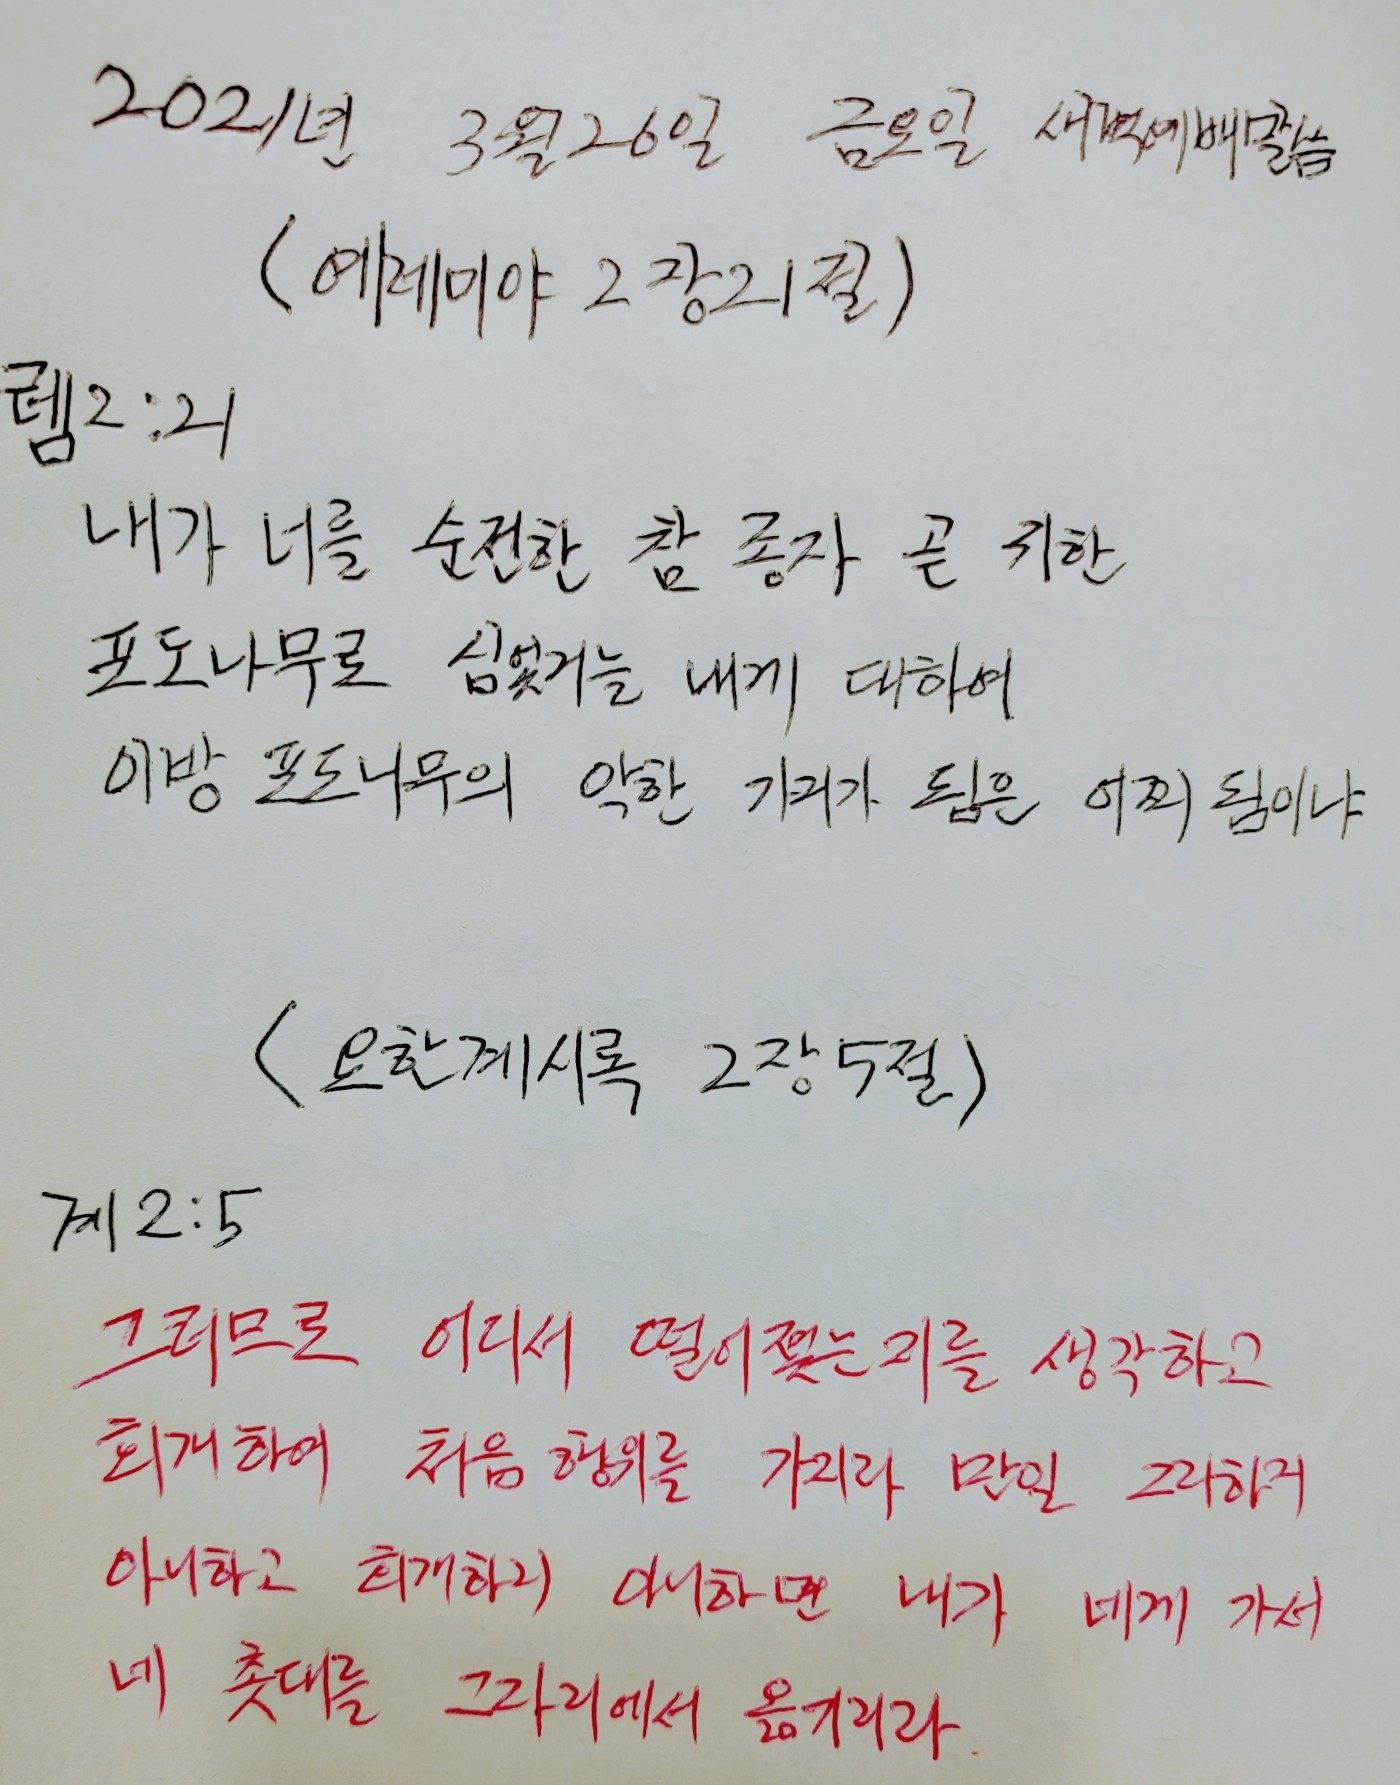 2021년 3월26일 금요일 새벽예배말씀
(예레미야 2장21절)
렘2:21
내가 너를 순전한 참 종자 곧 귀한
포도나무로 심었거늘 내게 대하여
이방 포도나무의 악한 가지가 됨은 어찌 됨이냐
(요한계시록 2장5절)
계2:5
그러므로 어디서 떨어졌는지를 생각하고
회개하여 처음 행위를 가지라 만일 그리하지
아니하고 회개하지 아니하면 내가 네게 가서
네 촛대를 그자리에서 옮기리라.